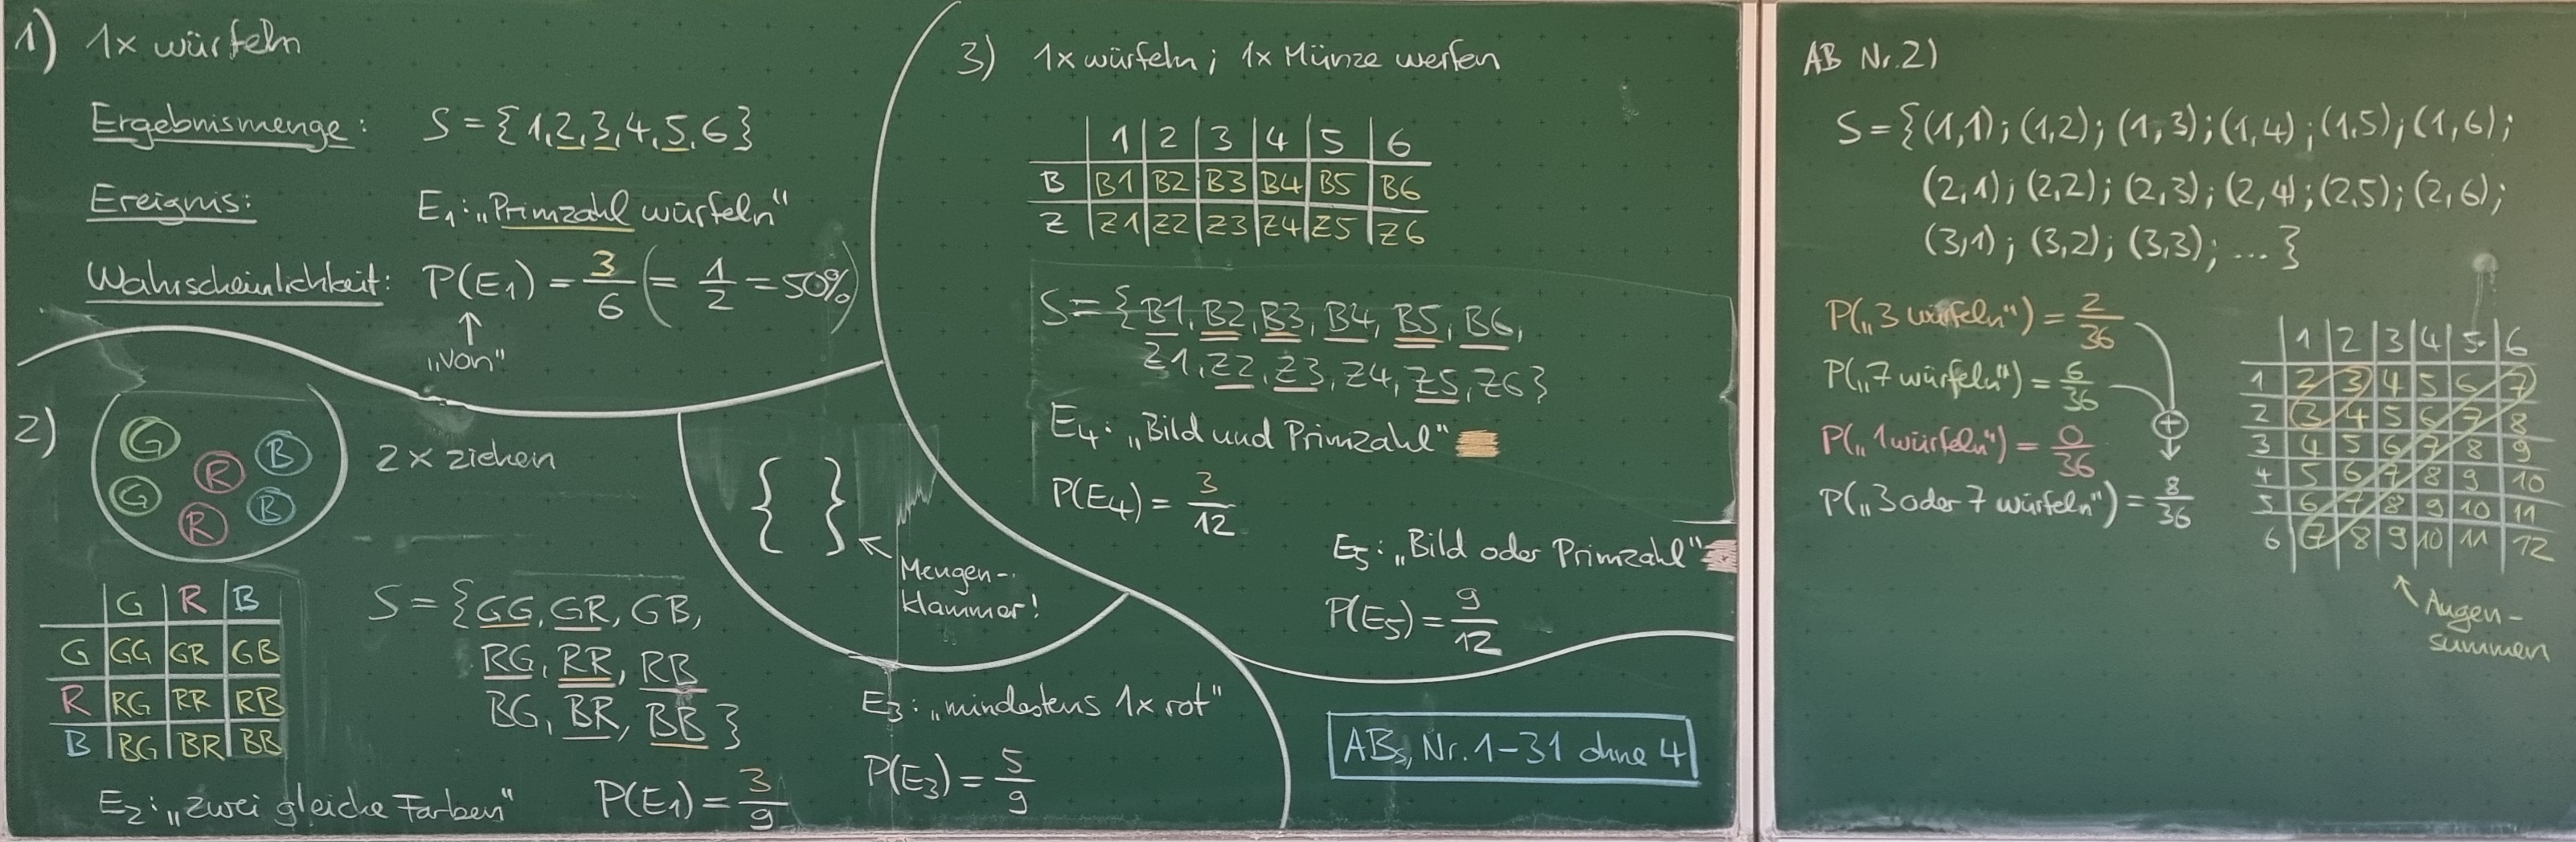 1) 1x würfeln
Ergebnismenge: S = {1,2,3,4,5,6}
Ereignis: E₁: „Primzahl würfeln“
Wahrscheinlichkeit: P(E₁) = 3/6 (= 1/2 = 50%)
↑
„von“
2) 2x ziehen
G R B
G R B
G R B
G GG GR GB
R RG RR RB
B BG BR BB
S = {GG, GR, GB,
RG, RR, RB
BG, BR, BB}
E₂: „zwei gleiche Farben“ P(E₁) = 3/9
{ }
Mengen-
klammer!
E₃: „mindestens 1x rot“
P(E₃) = 5/9
3) 1x würfeln; 1x Münze werfen
1 2 3 4 5 6
B B1 B2 B3 B4 B5 B6
Z Z1 Z2 Z3 Z4 Z5 Z6
S = {B1, B2, B3, B4, B5, B6,
Z1, Z2, Z3, Z4, Z5, Z6}
E₄: „Bild und Primzahl“
P(E₄) = 3/12
E₅: „Bild oder Primzahl“
P(E₅) = 9/12
ABs, Nr. 1-31 ohne 4
AB Nr. 2)
S = {(1,1); (1,2); (1,3); (1,4); (1,5); (1,6);
(2,1); (2,2); (2,3); (2,4); (2,5); (2,6);
(3,1); (3,2); (3,3); ... }
P(„3 würfeln“) = 2/36
P(„7 würfeln“) = 6/36
P(„1 würfeln“) = 0/36
P(„3 oder 7 würfeln“) = 8/36
+
1 2 3 4 5 6
1 2 3 4 5 6 7
2 3 4 5 6 7 8
3 4 5 6 7 8 9
4 5 6 7 8 9 10
5 6 7 8 9 10 11
6 7 8 9 10 11 12
Augen-
summen